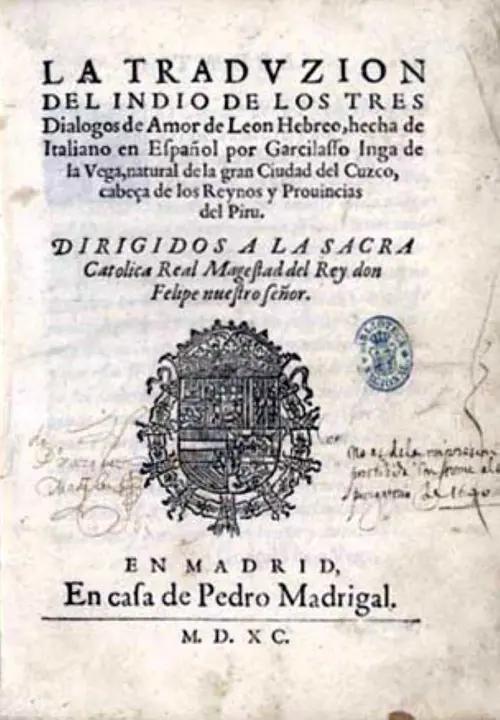 LA TRADVZION
DEL INDIO DE LOS TRES
Dialogos de Amor de Leon Hebreo, hecha de
Italiano en Eſpañol por Garcilaſſo Inga de
la Vega, natural de la gran Ciudad del Cuzco,
cabeça de los Reynos y Prouincias
del Piru.
DIRIGIDOS A LA SACRA
Catolica Real Mageſtad del Rey don
Felipe nueſtro ſeñor.
BIBLIOTECA
No es de la
de
de 1640
EN MADRID,
En caſa de Pedro Madrigal.
M. D. XC.